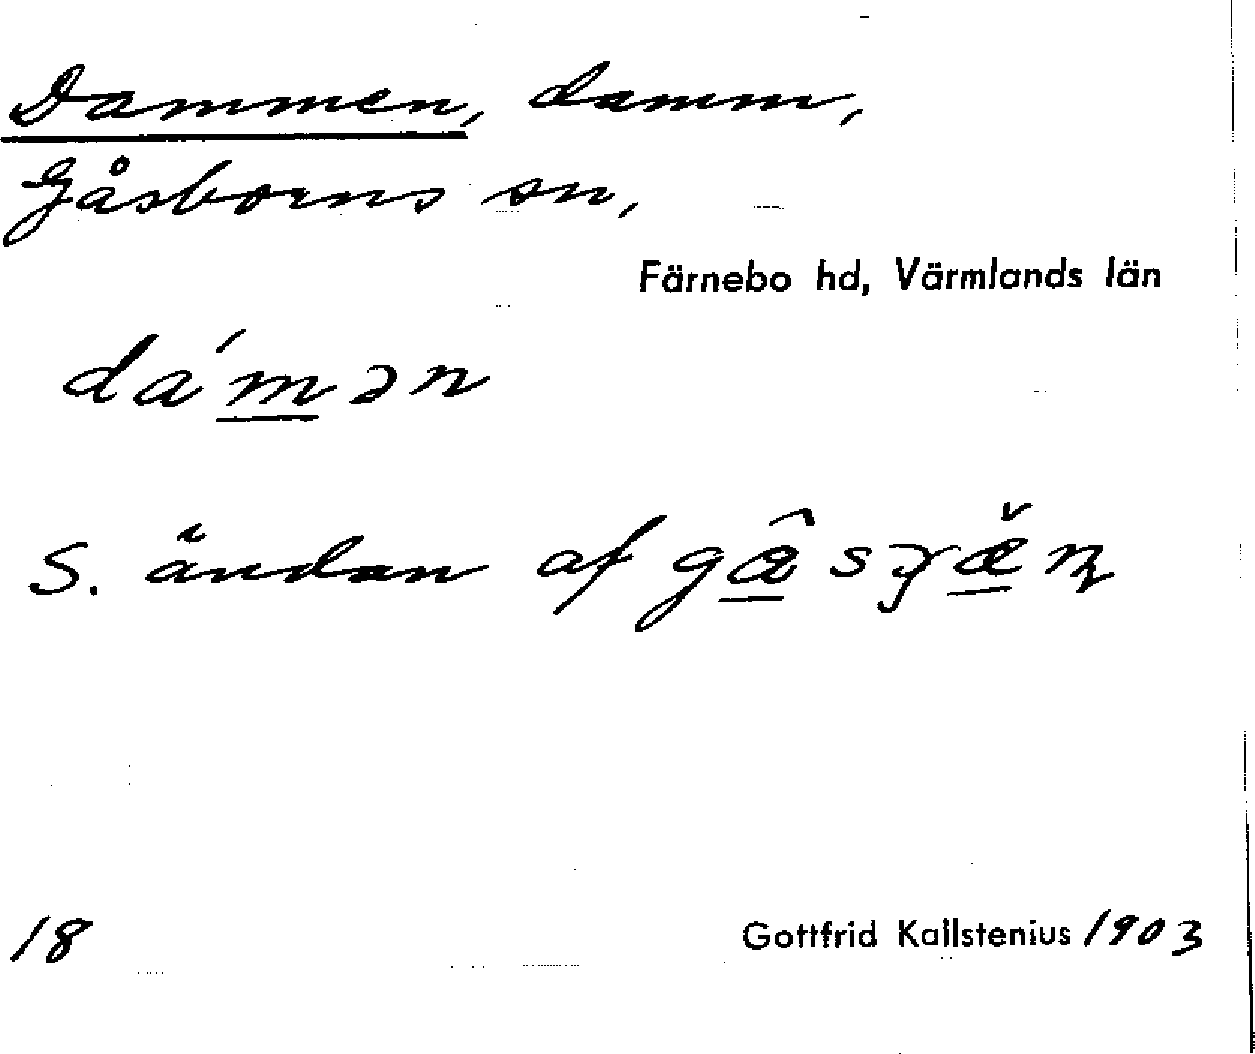 Dammen, damm,
Gåsborns sn,
Färnebo hd, Värmlands län
da´mən
S. ändan af
18 Gottfrid Kallstenius 1903